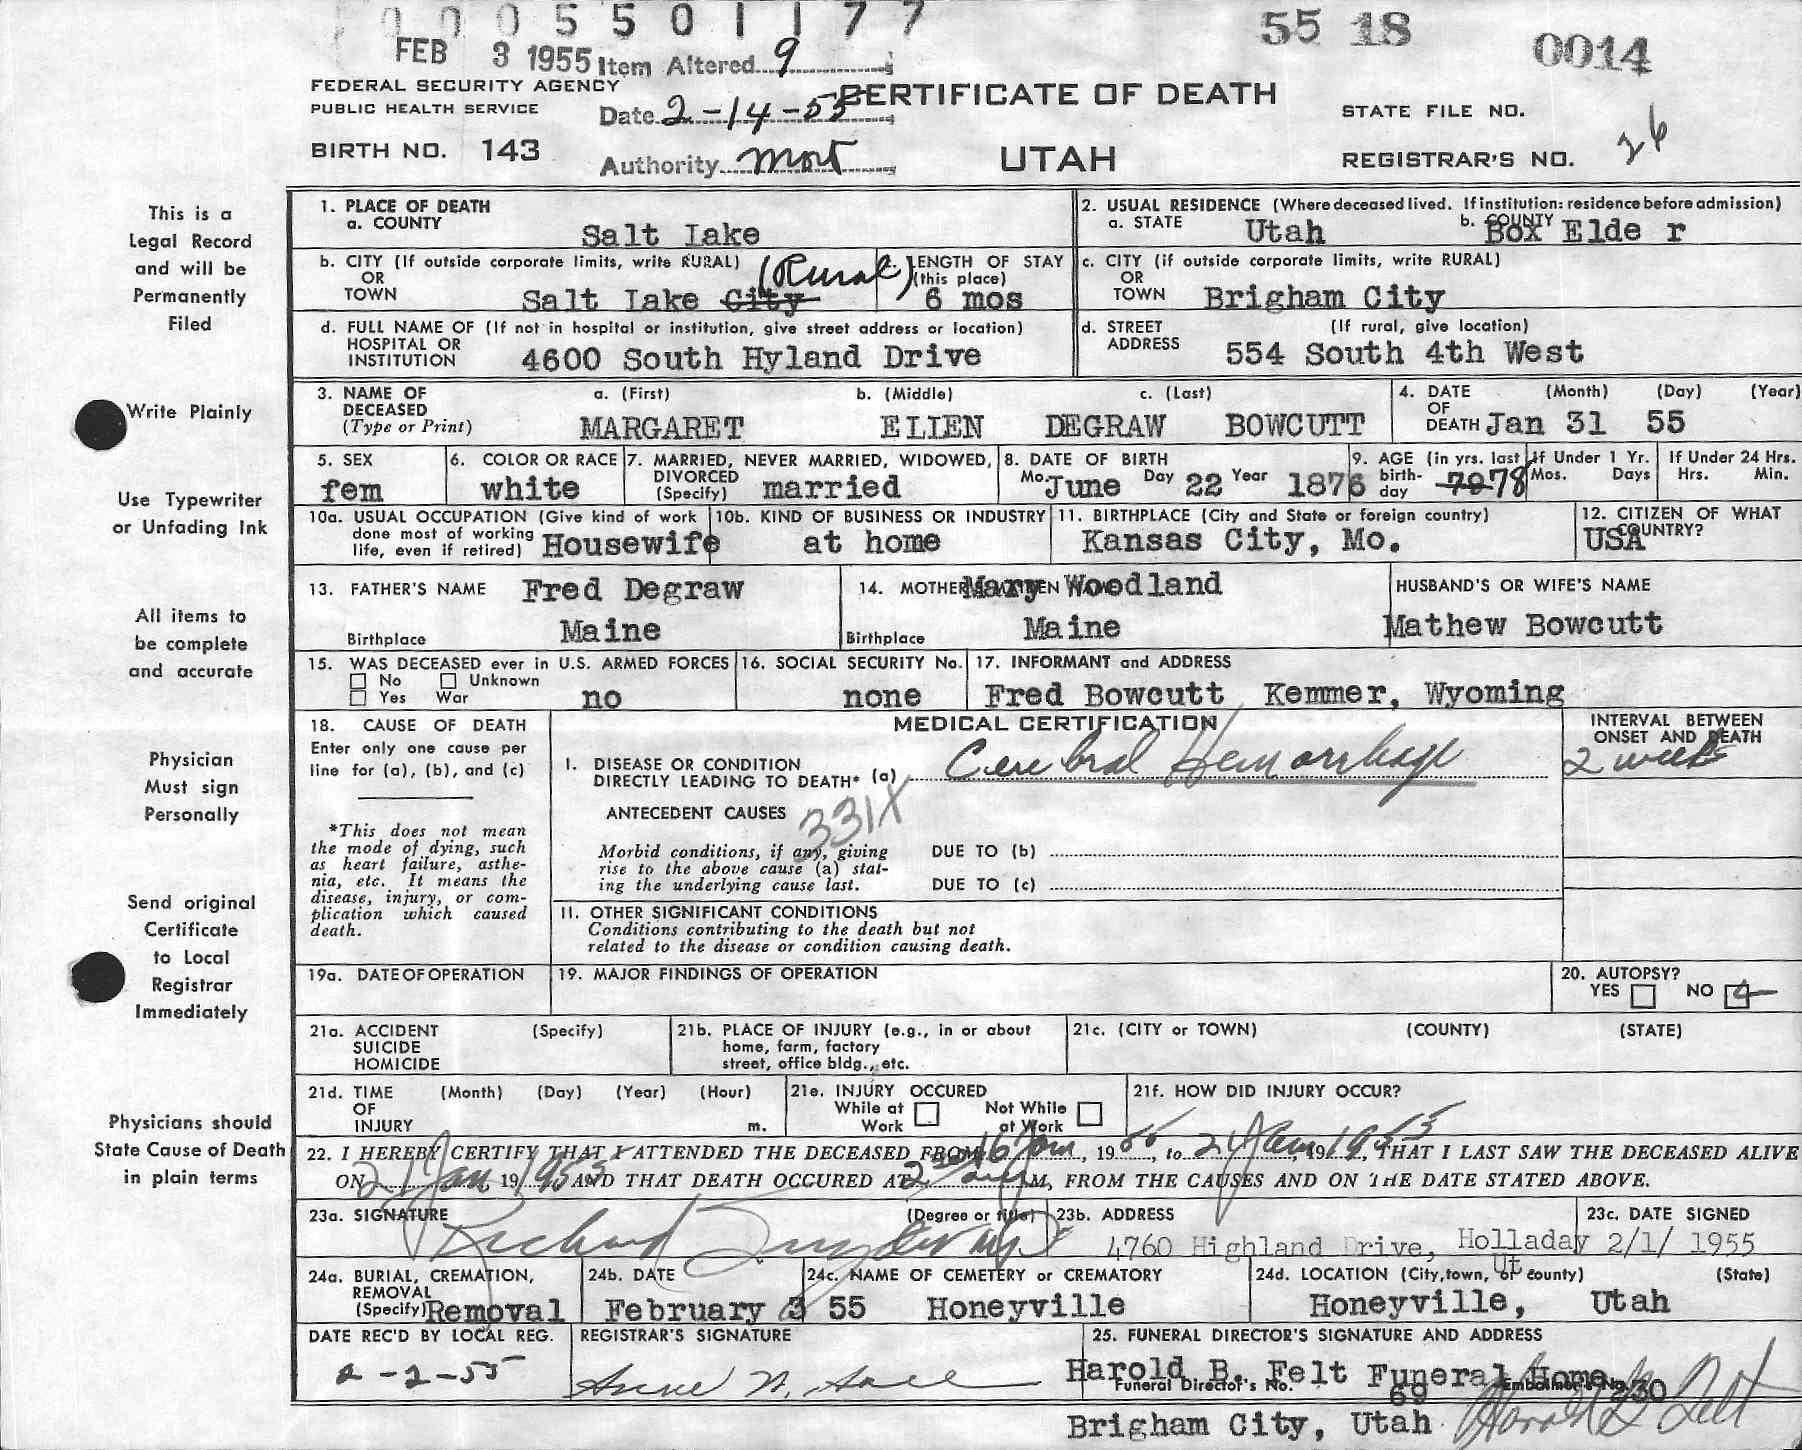 0005501177
55 18
0014
FEB 3 1955 Item Altered 9
FEDERAL SECURITY AGENCY
PUBLIC HEALTH SERVICE
Date 2-14-55
CERTIFICATE OF DEATH
STATE FILE NO.
BIRTH NO. 143
Authority mort
UTAH
REGISTRAR'S NO. 26
This is a
Legal Record
and will be
Permanently
Filed
Write Plainly
Use Typewriter
or Unfading Ink
All items to
be complete
and accurate
Physician
Must sign
Personally
Send original
Certificate
to Local
Registrar
Immediately
Physicians should
State Cause of Death
in plain terms
1. PLACE OF DEATH
a. COUNTY
Salt Lake
2. USUAL RESIDENCE (Where deceased lived. If institution: residence before admission)
a. STATE Utah b. COUNTY Box Elde r
b. CITY (If outside corporate limits, write RURAL)
OR
TOWN Salt Lake City (Rural)
LENGTH OF STAY
(this place)
6 mos
c. CITY (if outside corporate limits, write RURAL)
OR
TOWN Brigham City
d. FULL NAME OF (If not in hospital or institution, give street address or location)
HOSPITAL OR
INSTITUTION 4600 South Hyland Drive
d. STREET (If rural, give location)
ADDRESS 554 South 4th West
3. NAME OF a. (First) b. (Middle) c. (Last)
DECEASED
(Type or Print) MARGARET ELLEN DEGRAW BOWCUTT
4. DATE (Month) (Day) (Year)
OF
DEATH Jan 31 55
5. SEX
fem
6. COLOR OR RACE
white
7. MARRIED, NEVER MARRIED, WIDOWED,
DIVORCED
(Specify) married
8. DATE OF BIRTH
Mo. June Day 22 Year 1876
9. AGE (in yrs. last
birth-
day 79 78
If Under 1 Yr.
Mos. Days
If Under 24 Hrs.
Hrs. Min.
10a. USUAL OCCUPATION (Give kind of work
done most of working
life, even if retired) Housewife
10b. KIND OF BUSINESS OR INDUSTRY
at home
11. BIRTHPLACE (City and State or foreign country)
Kansas City, Mo.
12. CITIZEN OF WHAT
COUNTRY?
USA
13. FATHER'S NAME Fred Degraw
Birthplace Maine
14. MOTHER'S MAIDEN NAME Mary Woodland
Birthplace Maine
HUSBAND'S OR WIFE'S NAME
Mathew Bowcutt
15. WAS DECEASED ever in U.S. ARMED FORCES
No Unknown
Yes War no
16. SOCIAL SECURITY No.
none
17. INFORMANT and ADDRESS
Fred Bowcutt Kemmer, Wyoming
18. CAUSE OF DEATH
Enter only one cause per
line for (a), (b), and (c)
*This does not mean
the mode of dying, such
as heart failure, asthe-
nia, etc. It means the
disease, injury, or com-
plication which caused
death.
MEDICAL CERTIFICATION
INTERVAL BETWEEN
ONSET AND DEATH
I. DISEASE OR CONDITION
DIRECTLY LEADING TO DEATH* (a) Cerebral Hemorrhage
2 weeks
ANTECEDENT CAUSES
331X
Morbid conditions, if any, giving
rise to the above cause (a) stat-
ing the underlying cause last.
DUE TO (b)
DUE TO (c)
II. OTHER SIGNIFICANT CONDITIONS
Conditions contributing to the death but not
related to the disease or condition causing death.
19a. DATE OF OPERATION
19. MAJOR FINDINGS OF OPERATION
20. AUTOPSY?
YES NO
21a. ACCIDENT (Specify)
SUICIDE
HOMICIDE
21b. PLACE OF INJURY (e.g., in or about
home, farm, factory
street, office bldg., etc.
21c. (CITY or TOWN) (COUNTY) (STATE)
21d. TIME (Month) (Day) (Year) (Hour)
OF
INJURY m.
21e. INJURY OCCURED
While at Work
Not While at Work
21f. HOW DID INJURY OCCUR?
22. I HEREBY CERTIFY THAT I ATTENDED THE DECEASED FROM 16 Jan, 19 , to 21 Jan, 1955, THAT I LAST SAW THE DECEASED ALIVE
ON 21 Jan, 1955 AND THAT DEATH OCCURED AT M, FROM THE CAUSES AND ON THE DATE STATED ABOVE.
23a. SIGNATURE (Degree or title)
Richard
23b. ADDRESS
4760 Highland Drive, Holladay Ut
23c. DATE SIGNED
2/1/ 1955
24a. BURIAL, CREMATION,
REMOVAL
(Specify) Removal
24b. DATE
February 3 55
24c. NAME OF CEMETERY or CREMATORY
Honeyville
24d. LOCATION (City, town, or county) (State)
Honeyville, Utah
DATE REC'D BY LOCAL REG.
2-2-55
REGISTRAR'S SIGNATURE
25. FUNERAL DIRECTOR'S SIGNATURE AND ADDRESS
Harold B. Felt Funeral Home
Funeral Director's No. 69 Embalmer's No. 230
Brigham City, Utah Harold B Felt